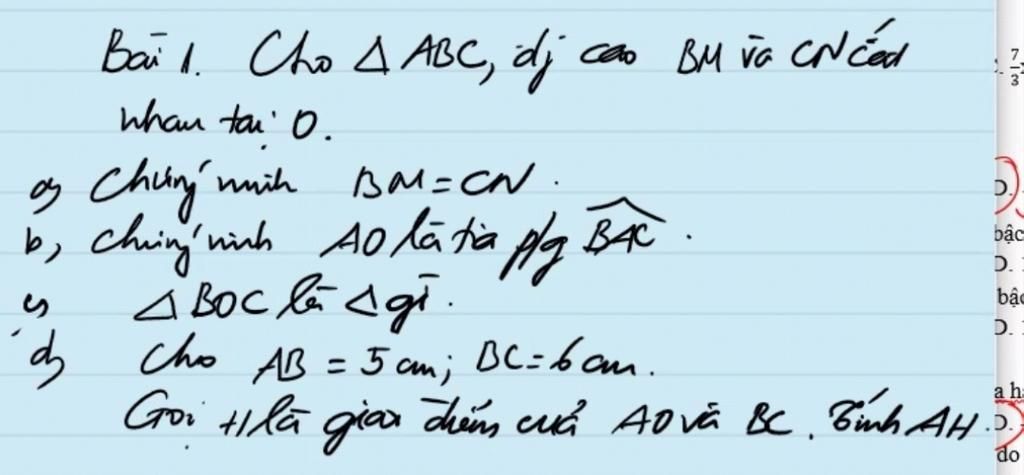 Bài 1. Cho Δ ABC, dg cao BM và CN cắt
nhau tại O.
a, Chứng minh BM = CN.
b, Chứng minh AO là tia p/g BAC.
c, Δ BOC là Δ gì.
d, Cho AB = 5 cm; BC = 6 cm.
Gọi H là giao điểm của AO và BC. Tính AH.
7
3
D.
bậc
D.
bậc
D.
a h
D.
do